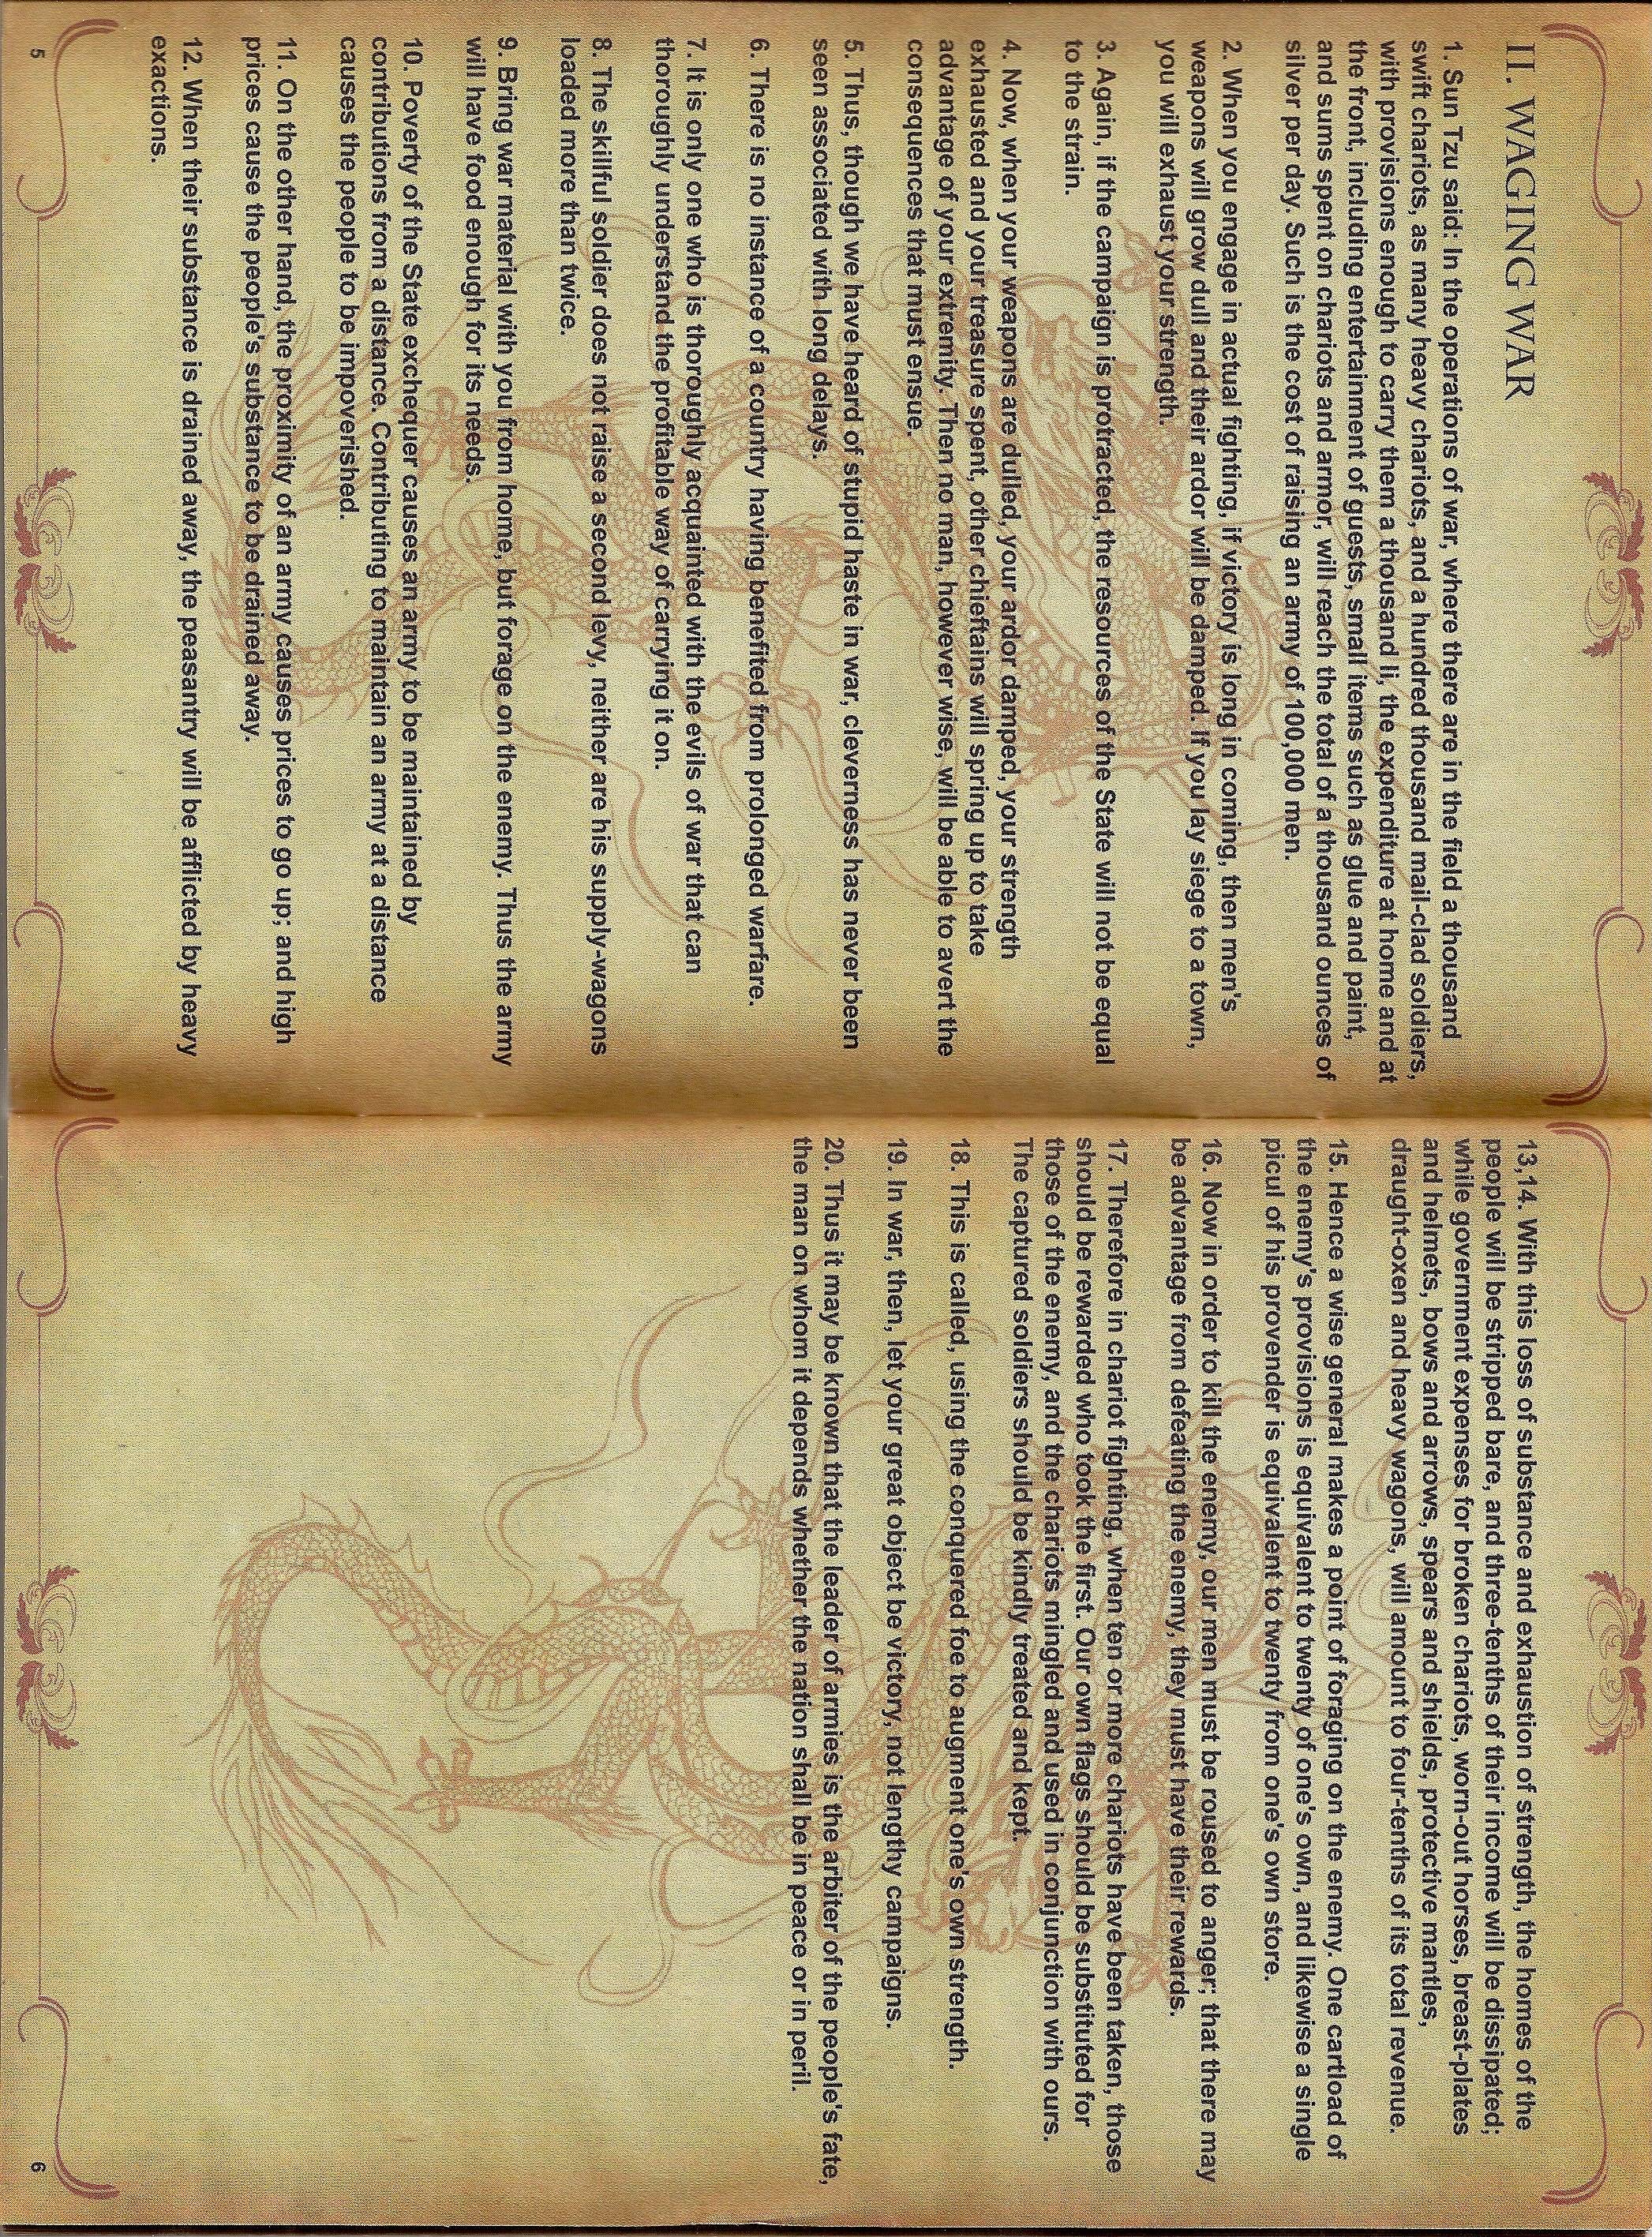 II. WAGING WAR
1. Sun Tzu said: In the operations of war, where there are in the field a thousand
swift chariots, as many heavy chariots, and a hundred thousand mail-clad soldiers,
with provisions enough to carry them a thousand li, the expenditure at home and at
the front, including entertainment of guests, small items such as glue and paint,
and sums spent on chariots and armor, will reach the total of a thousand ounces of
silver per day. Such is the cost of raising an army of 100,000 men.
2. When you engage in actual fighting, if victory is long in coming, then men's
weapons will grow dull and their ardor will be damped. If you lay siege to a town,
you will exhaust your strength.
3. Again, if the campaign is protracted, the resources of the State will not be equal
to the strain.
4. Now, when your weapons are dulled, your ardor damped, your strength
exhausted and your treasure spent, other chieftains will spring up to take
advantage of your extremity. Then no man, however wise, will be able to avert the
consequences that must ensue.
5. Thus, though we have heard of stupid haste in war, cleverness has never been
seen associated with long delays.
6. There is no instance of a country having benefited from prolonged warfare.
7. It is only one who is thoroughly acquainted with the evils of war that can
thoroughly understand the profitable way of carrying it on.
8. The skillful soldier does not raise a second levy, neither are his supply-wagons
loaded more than twice.
9. Bring war material with you from home, but forage on the enemy. Thus the army
will have food enough for its needs.
10. Poverty of the State exchequer causes an army to be maintained by
contributions from a distance. Contributing to maintain an army at a distance
causes the people to be impoverished.
11. On the other hand, the proximity of an army causes prices to go up; and high
prices cause the people's substance to be drained away.
12. When their substance is drained away, the peasantry will be afflicted by heavy
exactions.
5
13,14. With this loss of substance and exhaustion of strength, the homes of the
people will be stripped bare, and three-tenths of their income will be dissipated;
while government expenses for broken chariots, worn-out horses, breast-plates
and helmets, bows and arrows, spears and shields, protective mantles,
draught-oxen and heavy wagons, will amount to four-tenths of its total revenue.
15. Hence a wise general makes a point of foraging on the enemy. One cartload of
the enemy's provisions is equivalent to twenty of one's own, and likewise a single
picul of his provender is equivalent to twenty from one's own store.
16. Now in order to kill the enemy, our men must be roused to anger; that there may
be advantage from defeating the enemy, they must have their rewards.
17. Therefore in chariot fighting, when ten or more chariots have been taken, those
should be rewarded who took the first. Our own flags should be substituted for
those of the enemy, and the chariots mingled and used in conjunction with ours.
The captured soldiers should be kindly treated and kept.
18. This is called, using the conquered foe to augment one's own strength.
19. In war, then, let your great object be victory, not lengthy campaigns.
20. Thus it may be known that the leader of armies is the arbiter of the people's fate,
the man on whom it depends whether the nation shall be in peace or in peril.
6